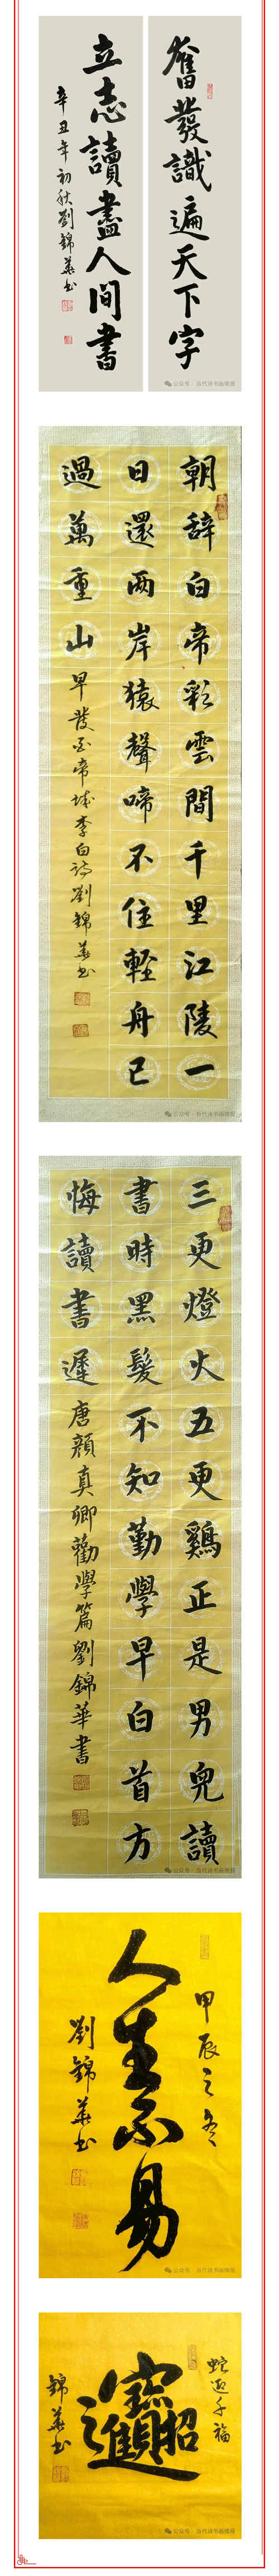 奮發識遍天下字
立志讀盡人間書
辛丑年初秋劉錦華书
公众号 · 当代诗书画
朝辞白帝彩雲間千里江陵一
日還两岸猿聲啼不住輕舟已
過萬重山 早發白帝城李白詩劉錦華书
公众号 · 当代诗书画
三更燈火五更鷄正是男兒讀
書時黑髮不知勤學早白首方
悔讀書遲 唐顔真卿勸學篇劉錦華書
公众号 · 当代诗书画
甲辰之冬
人生不易
劉錦華书
公众号 · 当代诗书画
蛇迎千福
招財進寶
錦華书
公众号 · 当代诗书画